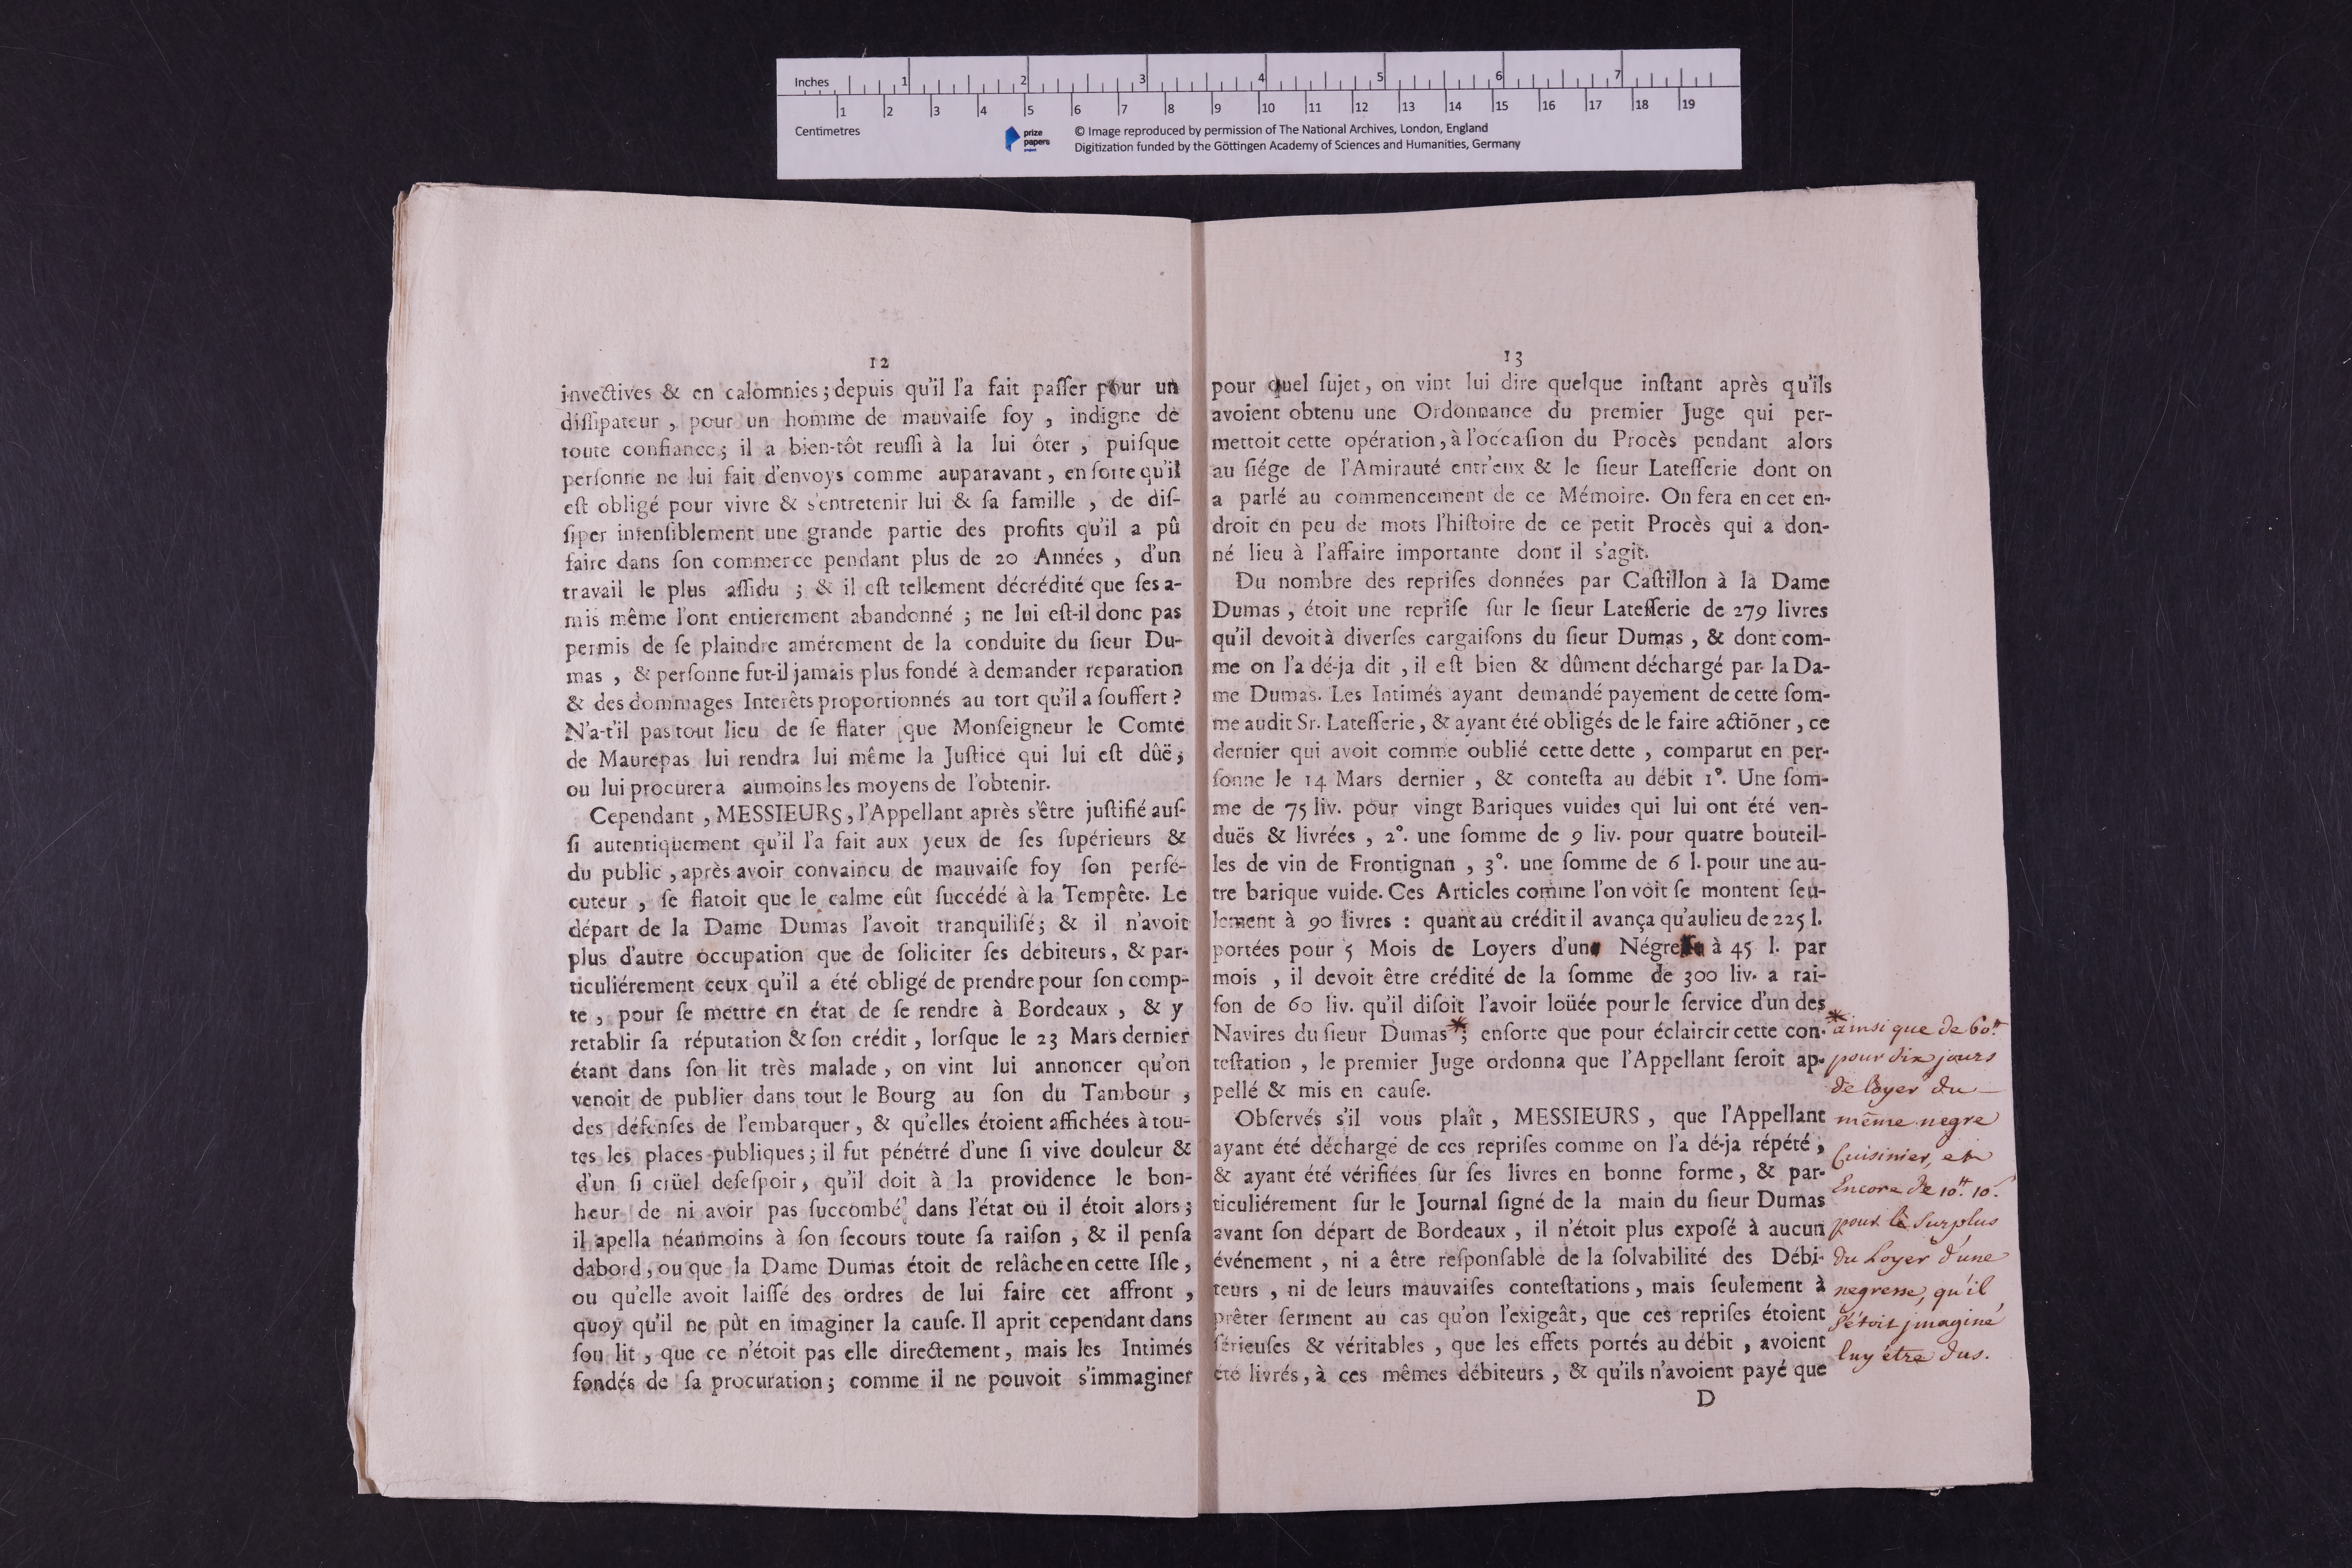 Inches 1 2 3 4 5 6 7
1 2 3 4 5 6 7 8 9 10 11 12 13 14 15 16 17 18 19
Centimetres
prize
papers
© Image reproduced by permission of The National Archives, London, England
Digitization funded by the Göttingen Academy of Sciences and Humanities, Germany
12
invectives & en calomnies ; depuis qu'il l'a fait paſſer pour un
diſſipateur , pour un homme de mauvaiſe foy , indigne de
toute confiance ; il a bien-tôt reuſſi à la lui ôter , puiſque
perſonne ne lui fait d'envoys comme auparavant , en ſorte qu'il
eſt obligé pour vivre & s'entretenir lui & ſa famille , de diſ-
ſiper inſenſiblement une grande partie des profits qu'il a pû
faire dans ſon commerce pendant plus de 20 Années , d'un
travail le plus aſſidu ; & il eſt tellement décrédité que ſes a-
mis même l'ont entierement abandonné ; ne lui eſt-il donc pas
permis de ſe plaindre amérement de la conduite du ſieur Du-
mas , & perſonne fut-il jamais plus fondé à demander reparation
& des dommages Interêts proportionnés au tort qu'il a ſouffert ?
N'a-t'il pas tout lieu de ſe flater que Monſeigneur le Comte
de Maurepas lui rendra lui même la Juſtice qui lui eſt dûë ;
ou lui procurera aumoins les moyens de l'obtenir.
Cependant , MESSIEURS , l'Appellant après s'être juſtifié auſ-
ſi autentiquement qu'il l'a fait aux yeux de ſes ſupérieurs &
du public , après avoir convaincu de mauvaiſe foy ſon perſé-
cuteur , ſe flatoit que le calme eût ſuccédé à la Tempête. Le
départ de la Dame Dumas l'avoit tranquiliſé ; & il n'avoit
plus d'autre occupation que de ſoliciter ſes debiteurs , & par-
ticuliérement ceux qu'il a été obligé de prendre pour ſon comp-
te , pour ſe mettre en état de ſe rendre à Bordeaux , & y
retablir ſa réputation & ſon crédit , lorſque le 23 Mars dernier
étant dans ſon lit très malade , on vint lui annoncer qu'on
venoit de publier dans tout le Bourg au ſon du Tambour ,
des défenſes de l'embarquer , & qu'elles étoient affichées à tou-
tes les places publiques ; il fut pénétré d'une ſi vive douleur &
d'un ſi crüel deſeſpoir , qu'il doit à la providence le bon-
heur de ni avoir pas ſuccombé dans l'état ou il étoit alors ;
il apella néanmoins à ſon ſecours toute ſa raiſon , & il penſa
dabord , ou que la Dame Dumas étoit de relâche en cette Iſle ,
ou qu'elle avoit laiſſé des ordres de lui faire cet affront ,
quoy qu'il ne pùt en imaginer la cauſe. Il aprit cependant dans
ſon lit , que ce n'étoit pas elle directement , mais les Intimés
fondés de ſa procuration ; comme il ne pouvoit s'immaginer
13
pour quel ſujet , on vint lui dire quelque inſtant après qu'ils
avoient obtenu une Ordonnance du premier Juge qui per-
mettoit cette opération , à l'occaſion du Procès pendant alors
au ſiége de l'Amirauté entr'eux & le ſieur Lateſſerie dont on
a parlé au commencement de ce Mémoire. On fera en cet en-
droit en peu de mots l'hiſtoire de ce petit Procès qui a don-
né lieu à l'affaire importante dont il s'agit.
Du nombre des repriſes données par Caſtillon à la Dame
Dumas , étoit une repriſe ſur le ſieur Lateſſerie de 279 livres
qu'il devoit à diverſes cargaiſons du ſieur Dumas , & dont com-
me on l'a dé-ja dit , il eſt bien & dûment déchargé par la Da-
me Dumas. Les Intimés ayant demandé payement de cette ſom-
me audit Sr. Lateſſerie , & ayant été obligés de le faire actiōner , ce
dernier qui avoit comme oublié cette dette , comparut en per-
ſonne le 14 Mars dernier , & conteſta au débit 1°. Une ſom-
me de 75 liv. pour vingt Bariques vuides qui lui ont été ven-
duës & livrées , 2°. une ſomme de 9 liv. pour quatre bouteil-
les de vin de Frontignan , 3°. une ſomme de 6 l. pour une au-
tre barique vuide. Ces Articles comme l'on voit ſe montent ſeu-
lement à 90 livres : quant au crédit il avança qu'aulieu de 225 l.
portées pour 5 Mois de Loyers d'un Négre à 45 l. par
mois , il devoit être crédité de la ſomme de 300 liv. a rai-
ſon de 60 liv. qu'il diſoit l'avoir loüée pour le ſervice d'un des
Navires du ſieur Dumas* ; enſorte que pour éclaircir cette con-
teſtation , le premier Juge ordonna que l'Appellant ſeroit ap-
pellé & mis en cauſe.
Obſervés s'il vous plaît , MESSIEURS , que l'Appellant
ayant été déchargé de ces repriſes comme on l'a dé-ja répété ,
& ayant été vérifiées ſur ſes livres en bonne forme , & par-
ticuliérement ſur le Journal ſigné de la main du ſieur Dumas
avant ſon départ de Bordeaux , il n'étoit plus expoſé à aucun
événement , ni a être reſponſable de la ſolvabilité des Débi-
teurs , ni de leurs mauvaiſes conteſtations , mais ſeulement à
prêter ſerment au cas qu'on l'exigeât , que ces repriſes étoient
ſérieuſes & véritables , que les effets portés au débit , avoient
été livrés , à ces mêmes débiteurs , & qu'ils n'avoient payé que
D
* ainsi que de 60tt
pour dix jours
de loyer du
même negre
Cuisinier, et
Encore de 10tt. 10s.
pour le Surplus
du Loyer d'une
negresse, qu'il
s'étoit jmaginé
luy être dus.